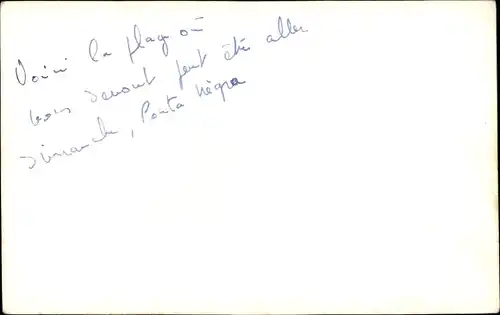 Voici la plage où
nous devont peut être aller
dimanche, Ponta Négra